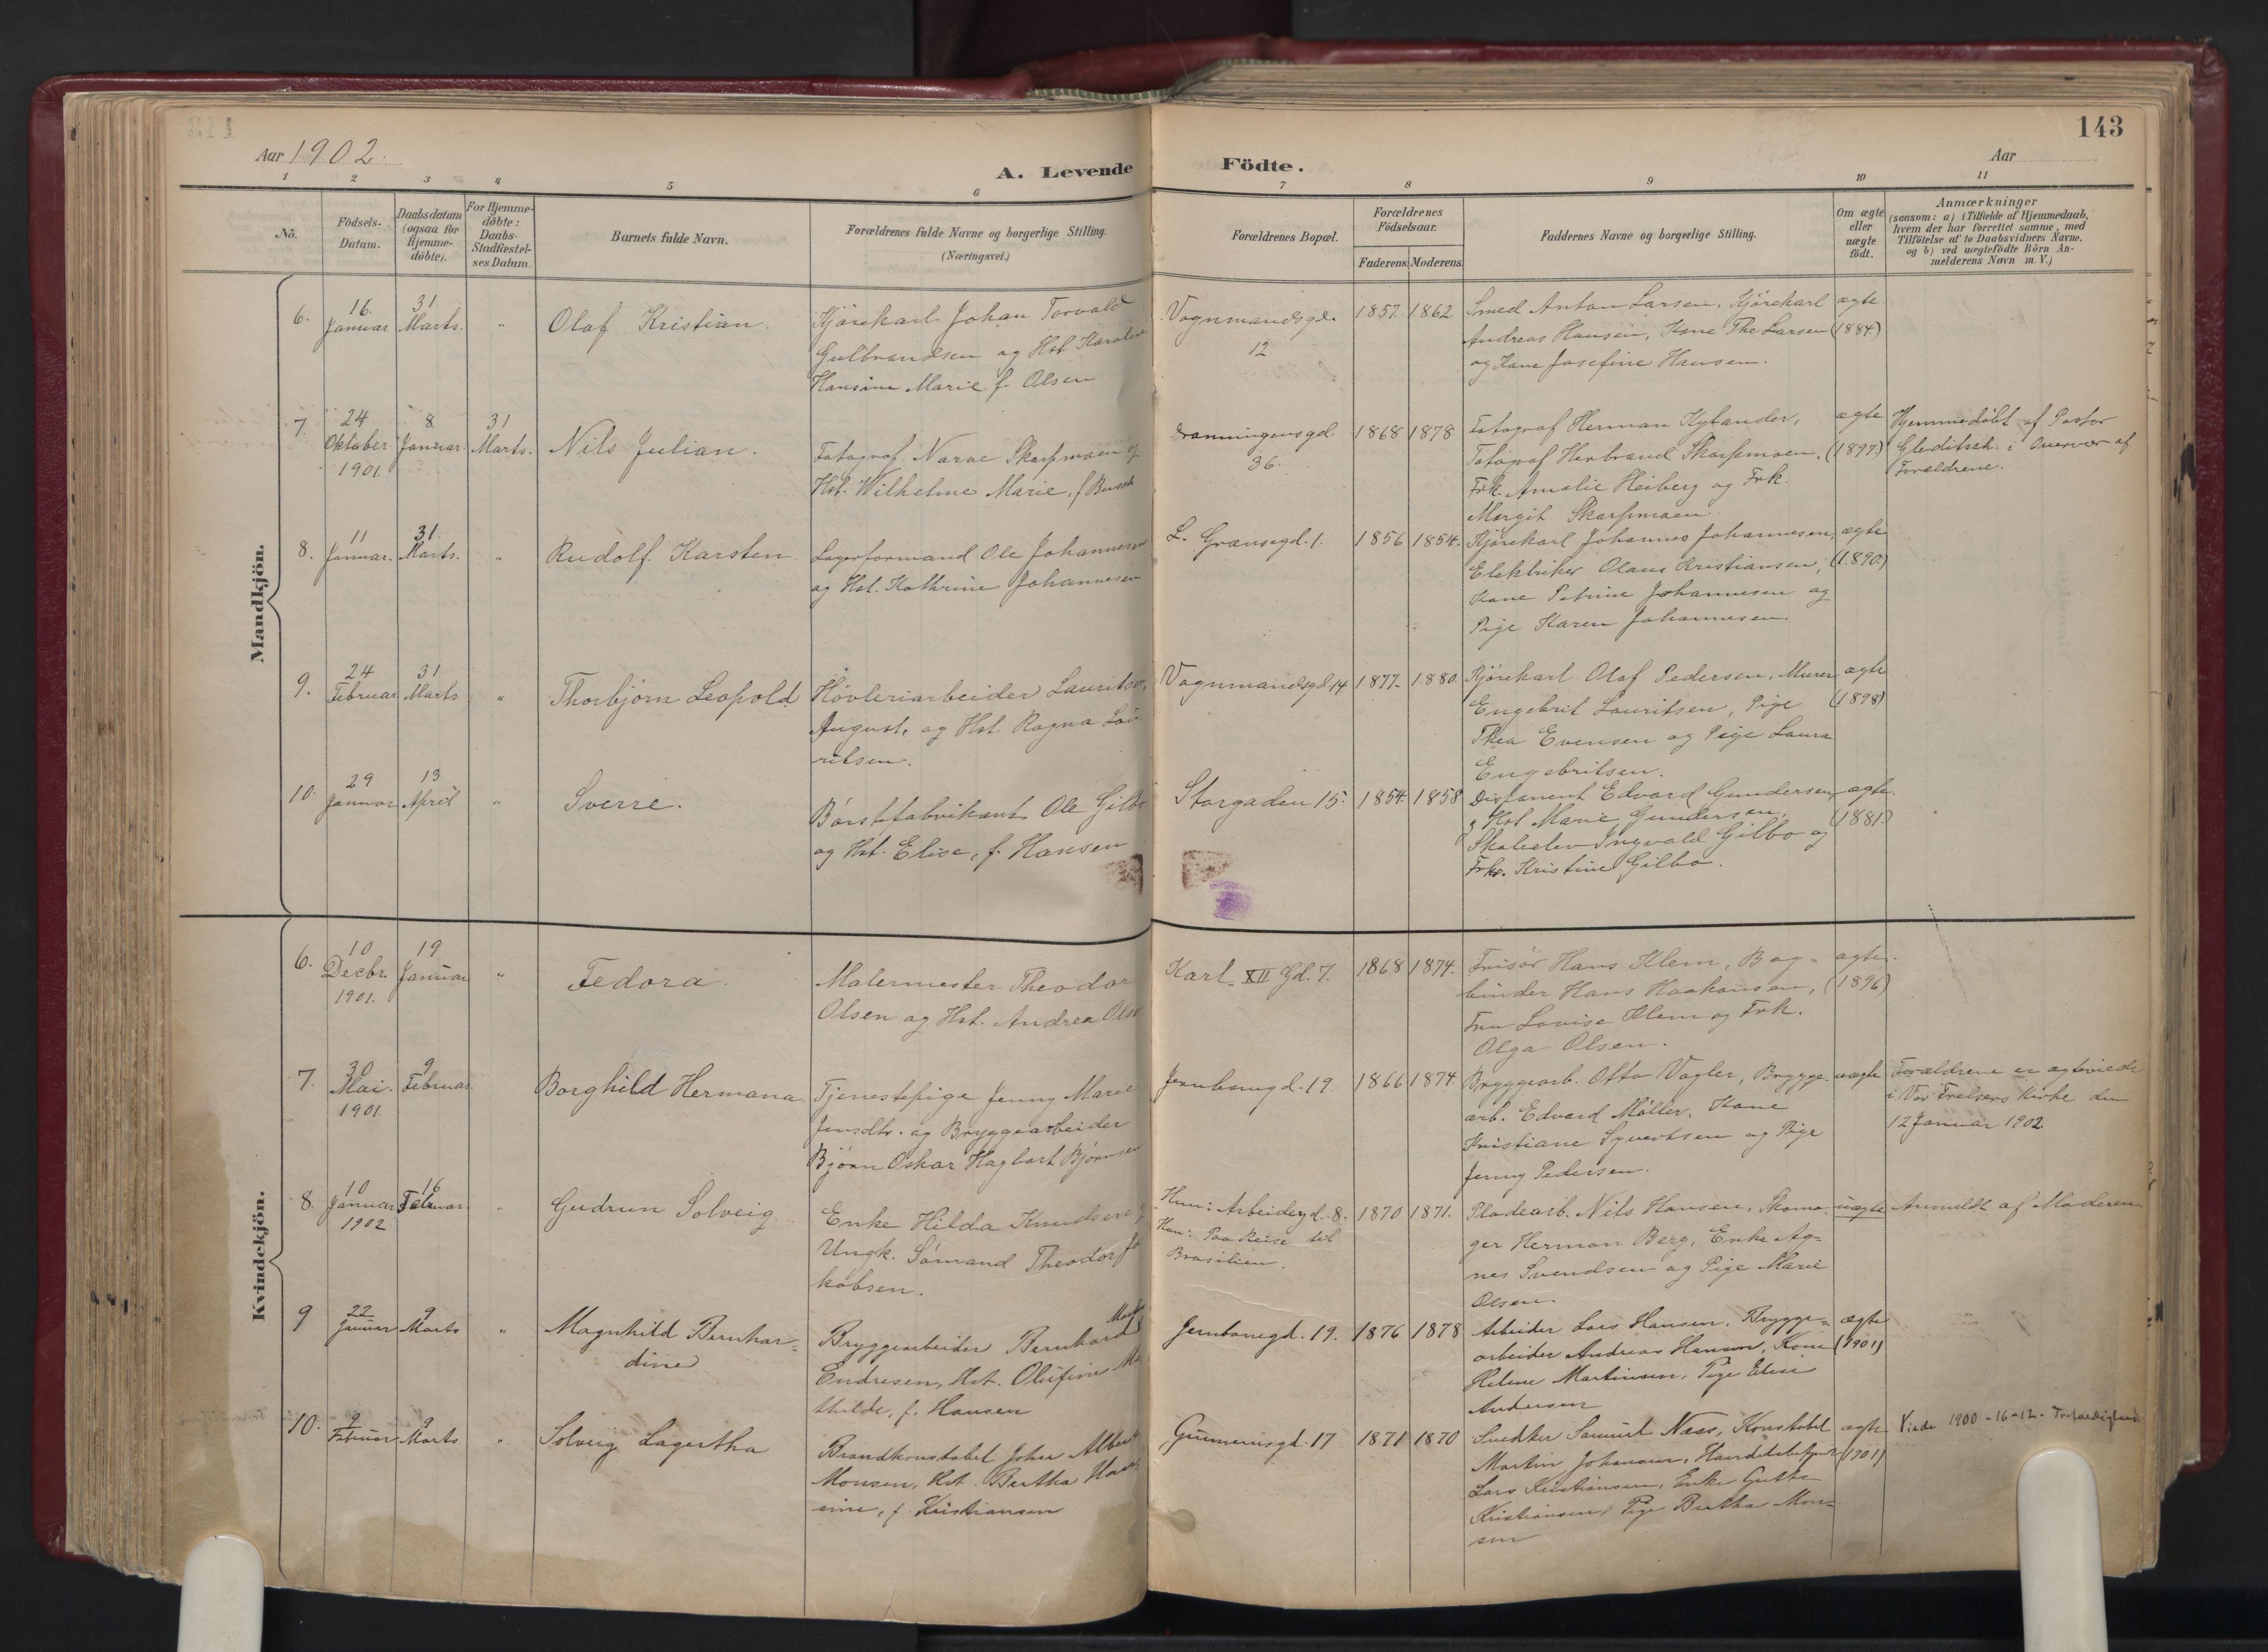 143
Aar 1902.
A. Levende Födte.
Aar
1 2 3 4 5 6 7 8 9 10 11
Nö.
Födsels-Datum.
Daabsdatum (ogsaa for Hjemme-döbte).
For Hjemme-döbte: Daabs-Stadfæstel-ses Datum.
Barnets fulde Navn.
Forældrenes fulde Navne og borgerlige Stilling. (Næringsvei.)
Forældrenes Bopæl.
Forældrenes Födselsaar.
Faderens. Moderens.
Faddernes Navne og borgerlige Stilling.
Om ægte eller uægte födt.
Anmærkninger
(saasom: a) i Tilfælde af Hjemmedaab,
hvem der har forrettet samme, med
Tilföielse af to Daabsvidners Navne,
og b) ved uægtefödte Börn An-
melderens Navn m. V.)
Mandkjön.
6. 16. Januar 31 Marts. " Olaf Kristian.
Kjørekarl Johan Torvald
Gulbrandsen og Hst. Karoline
Hansine Marie f. Olsen
Vognmandsgd. 12
1857. 1862
Smed Anton Larsen, Kjørekarl
Andreas Hansen, Kone Thea Larsen
og Kone Josefine Hansen.
ægte (1884)
7. 24 Oktober 1901. 8 Januar. 31 Marts. Nils Julian.
Fotograf Narve Skarpmoen og
Hst. Wilhelme Marie, f. Busch
Dronningensgd. 36.
1868 1878
Fotograf Herman Nylander,
Fotograf Herbrand Skarpmoen,
Frk. Amalie Heiberg og Frk.
Margit Skarpmoen
ægte (1897)
Hjemmedøbt af Pastor
Gleditsch i Overvær af
Forældrene.
8. 11 Januar. 31. Marts. " Rudolf Karsten.
Lagerformand Ole Johannesen
og Hst. Kathrine Johannesen
L. Grænsegd. 1.
1856 1854.
Kjørekarl Johannes Johannesen,
Elektriker Olaus Kristiansen,
Kone Petrine Johannesen og
Pige Karen Johannesen.
ægte (1890.)
9. 24 Februar 31 Marts " Thorbjørn Leopold
Høvleriarbeider Lauritsen,
August, og Hst. Ragna Lau
ritsen.
Vognmandsgd. 14
1877. 1880.
Kjørekarl Olaf Pedersen, Murer
Engebrit Lauritsen, Pige
Thea Evensen og Pige Laura
Engebritsen.
ægte (1898)
10. 29 Januar 13 April " Sverre.
Børstefabrikant Ole Gilbo
og Hst. Elise, f. Hansen
Storgaden 15.
1854. 1858
Disponent Edvard Gundersen
og Hst Marie Gundersen,
Skoleelev Ingvald Gilbo og
Frk. Kristine Gilbo.
ægte. (1881.)
Kvindekjön.
6. 10 Decbr. 1901. 19 Januar " Fedora.
Malermester Theodor
Olsen og Hst. Andrea Olsen
Karl XII Gd. 7.
1868 1874.
Frisør Hans Klem, Bog-
binder Hans Haakonsen,
Fru Lovise Klem og Frk.
Olga Olsen.
ægte. (1896)
7. 30 Mai. 1901. 9 Februar Borghild Hermana
Tjenestepige Jenny Marie
Jensdtr. og Bryggearbeider
Bjørn Oskar Hagbart Bjørnsen
Jernbanegd. 19
1866 1874.
Bryggearb. Otto Vogler, Brygge-
arb. Edvard Møller, Kone
Kristiane Syvertsen og Pige
Jenny Pedersen.
uægte
Forældrene er ægteviede
i Vor Frelsers Kirke den
12 Januar 1902.
8. 10 Januar 1902 16 Februar. " Gudrun Solveig
Enke Hilda Knudsen og
Ungk. Sømand Theodor Ja
kobsen.
Hun: Arbeidergd. 8.
Han: Paa Reise til
Brasilien.
1870 1871.
Pladearb. Nils Hansen, Skoma-
ger Herman Berg, Enke Ag-
nes Svendsen og Pige Marie
Olsen.
uægte
Anmeldt af Moderen.
9 22 Januar 9 Marts " Magnhild Bernhar-
dine
Bryggearbeider Bernhard
Endresen, Hst. Olufine Ma
thilde, f. Hansen
Jernbanegd. 19.
1876 1878
Arbeider Lars Hansen, Brygge-
arbeider Andreas Hansen, Kone
Helene Martinsen, Pige Elise
Andersen
ægte (1901)
10. 9 Februar 9 Marts " Solveig Lagertha
Brandkonstabel John Albert
Monsen, Hst. Bertha Han
sine, f. Kristiansen
Gunnerusgd. 17
1871 1870
Snedker Samuel Næss, Konstabel
Martin Johansen, Handelsbetjent
Lars Kristiansen, Enke
Kristiansen, Pige Bertha Mon-
sen
ægte (1901)
Viede 1900-16-12-